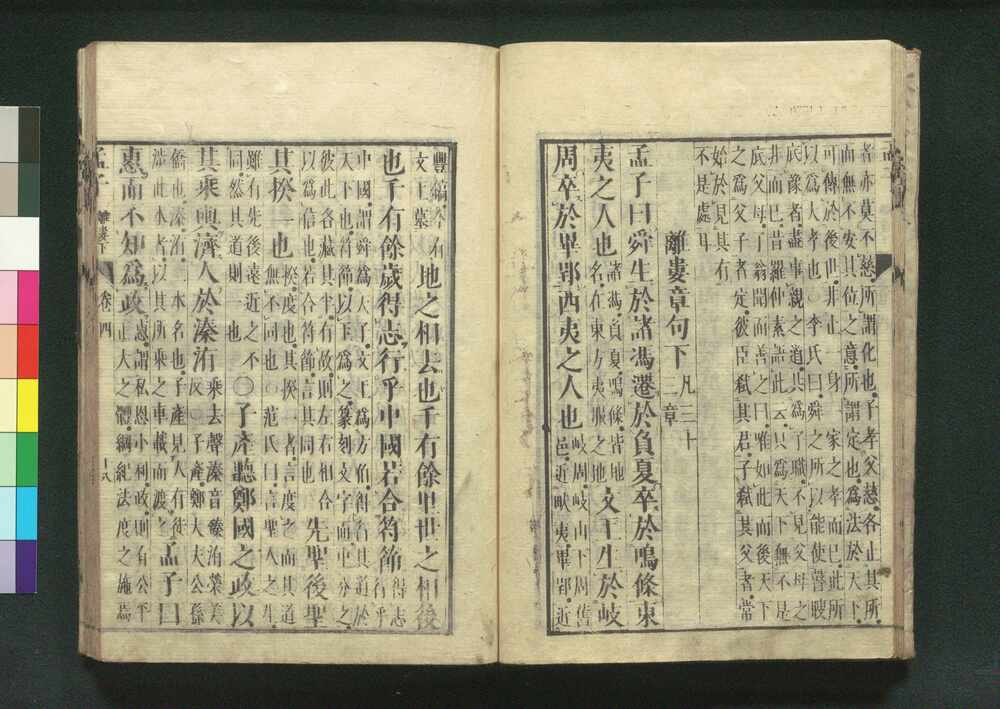 者亦莫不慈所謂化也子孝父慈各止其所
而無不安其位之意所謂定也為法於天下
可傳於後世非止一身一家之孝而已此所
以為大孝也○李氏曰舜之所以能使瞽瞍
底豫者盡事親之道共為子職不見父母之
非而已昔羅仲素語此云只為天下無不是
底父母了翁聞而善之曰唯如此而後天下
之為父子者定彼臣弒其君子弒其父者常
始於見其有
不是處耳
離婁章句下
凡三十
三章
孟子曰舜生於諸馮遷於負夏卒於鳴條東
夷之人也
諸馮負夏鳴條皆地
名在東方夷服之地
文王生於岐
周卒於畢郢西夷之人也
岐周岐山下周舊
邑近畎夷畢郢近
豐鎬今有
文王墓
地之相去也千有餘里世之相後
也千有餘歲得志行乎中國若合符節
得志
行乎
中國謂舜為天子文王為方伯得行其道於
天下也符節以玉為之篆刻文字而中分之
彼此各藏其半有故則左右相合
以為信也若合符節言其同也
先聖後聖
其揆一也
揆度也其揆一者言度之而其道
無不同也○范氏曰言聖人之生
雖有先後遠近之不
同然其道則一也
○子產聽鄭國之政以
其乘輿濟人於溱洧
乘去聲溱音臻洧榮美
反○子產鄭大夫公孫
僑也溱洧二水名也子產見人有徒
涉此水者以其所乘之車載而渡之
孟子曰
惠而不知為政
惠謂私恩小利政則有公平
正大之體綱紀法度之施焉
孟子
離婁下
卷四
十八